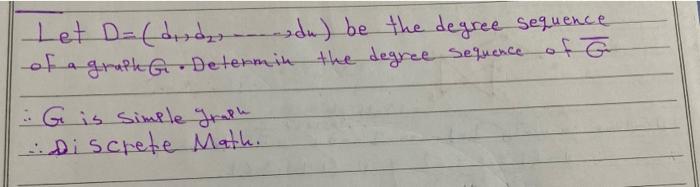 Let D=(d₁,d₂,-----,dn) be the degree sequence
of a graph G. Determin the degree sequence of G̅
∴ G is simple graph
∴ Discrete Math.